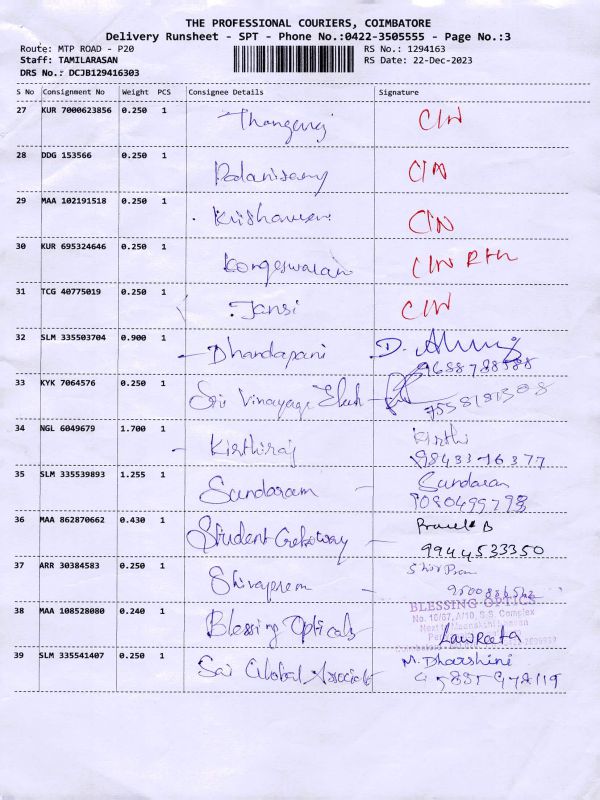 THE PROFESSIONAL COURIERS, COIMBATORE
Delivery Runsheet - SPT - Phone No.:0422-3505555 - Page No.:3
Route: MTP ROAD - P20 RS No.: 1294163
Staff: TAMILARASAN RS Date: 22-Dec-2023
DRS No.: DCJB129416303
S No Consignment No Weight PCS Consignee Details Signature
27 KUR 7000623856 0.250 1 Thangaraj CIN
28 DDG 153566 0.250 1 Palanisamy CIN
29 MAA 102191518 0.250 1 CIN
30 KUR 695324646 0.250 1 Kongeswaran CIN RTN
31 TCG 40775019 0.250 1 Jansi CIN
32 SLM 335503704 0.900 1 Dhandapani D.
9688788588
33 KYK 7064576 0.250 1 Sri Vinayaga
34 NGL 6049679 1.700 1 Kirthiraj Kirthi
98433 76377
35 SLM 335539893 1.255 1 Sundaram Sundaram
36 MAA 862870662 0.430 1 Student B
9944533350
37 ARR 30384583 0.250 1 Shivaprem
38 MAA 108528080 0.240 1 Blessing Opticals BLESSING OPTICS
No. 10/67, A/10, S.S. Complex
39 SLM 335541407 0.250 1 Sai Global Associate M. Dharshini